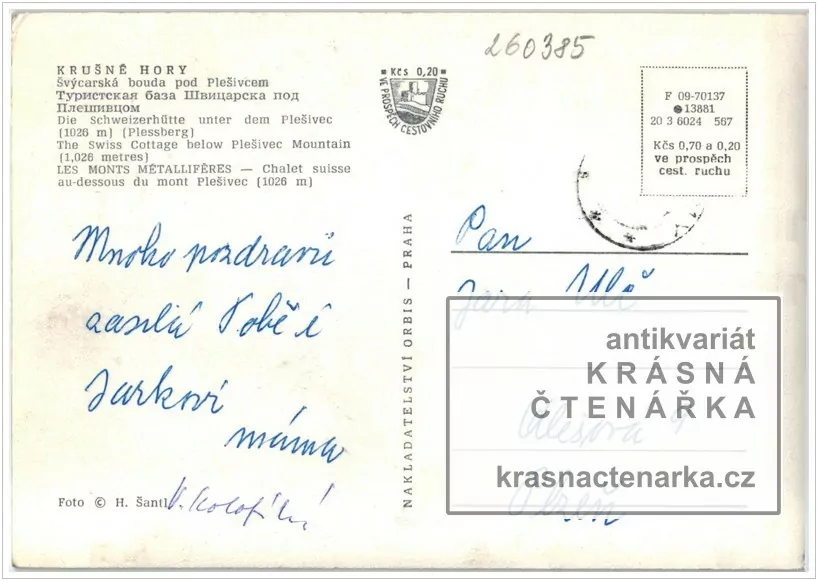 260385
KRUŠNÉ HORY
Švýcarská bouda pod Plešivcem
Туристская база Швицарска под
Плешивцом
Die Schweizerhütte unter dem Plešivec
(1026 m) (Plessberg)
The Swiss Cottage below Plešivec Mountain
(1,026 metres)
LES MONTS MÉTALLIFÈRES — Chalet suisse
au-dessous du mont Plešivec (1026 m)
Kčs 0,20
VE PROSPĚCH CESTOVNÍHO RUCHU
F 09-70137
13881
20 3 6024 567
Kčs 0,70 a 0,20
ve prospěch
cest. ruchu
Mnoho pozdravů
zasílá Tobě i
Jarkovi
máma
Foto © H. Šantl
NAKLADATELSTVÍ ORBIS — PRAHA
Pan
Jara
Alešova
Plzeň
antikvariát
KRÁSNÁ
ČTENÁŘKA
krasnactenarka.cz